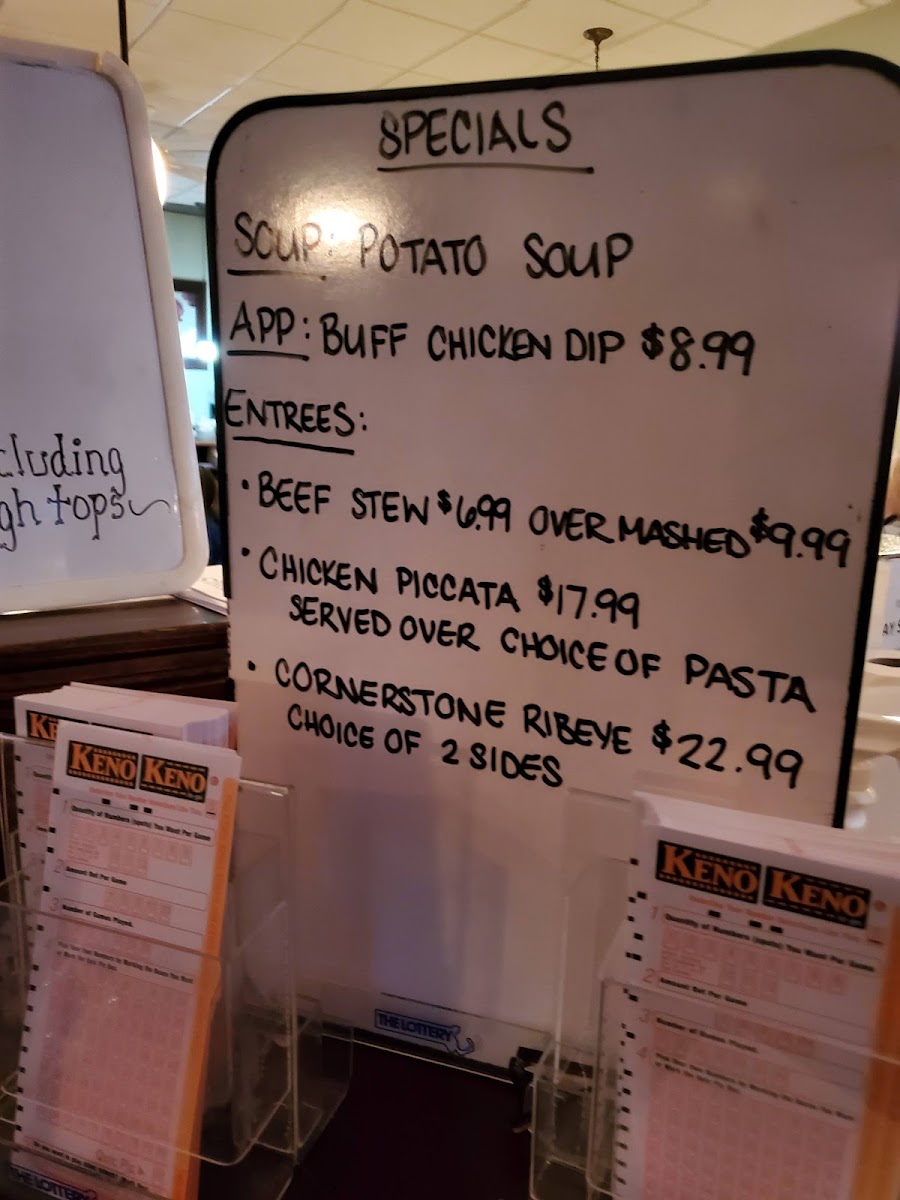 SPECIALS
SOUP: POTATO SOUP
APP: BUFF CHICKEN DIP $8.99
ENTREES:
• BEEF STEW $6.99 OVER MASHED $9.99
• CHICKEN PICCATA $17.99
SERVED OVER CHOICE OF PASTA
• CORNERSTONE RIBEYE $22.99
CHOICE OF 2 SIDES
cluding
gh tops~
KENO KENO
1 Quantity of Numbers (spots) You Want Per Game
2 Amount Bet Per Game
3 Number of Games Played.
4
Quic Pic
THE LOTTERY
THE LOTTERY
KENO KENO
1 Quantity of Numbers (spots) You Want Per Game
2 Amount Bet Per Game
3 Number of Games Played.
4